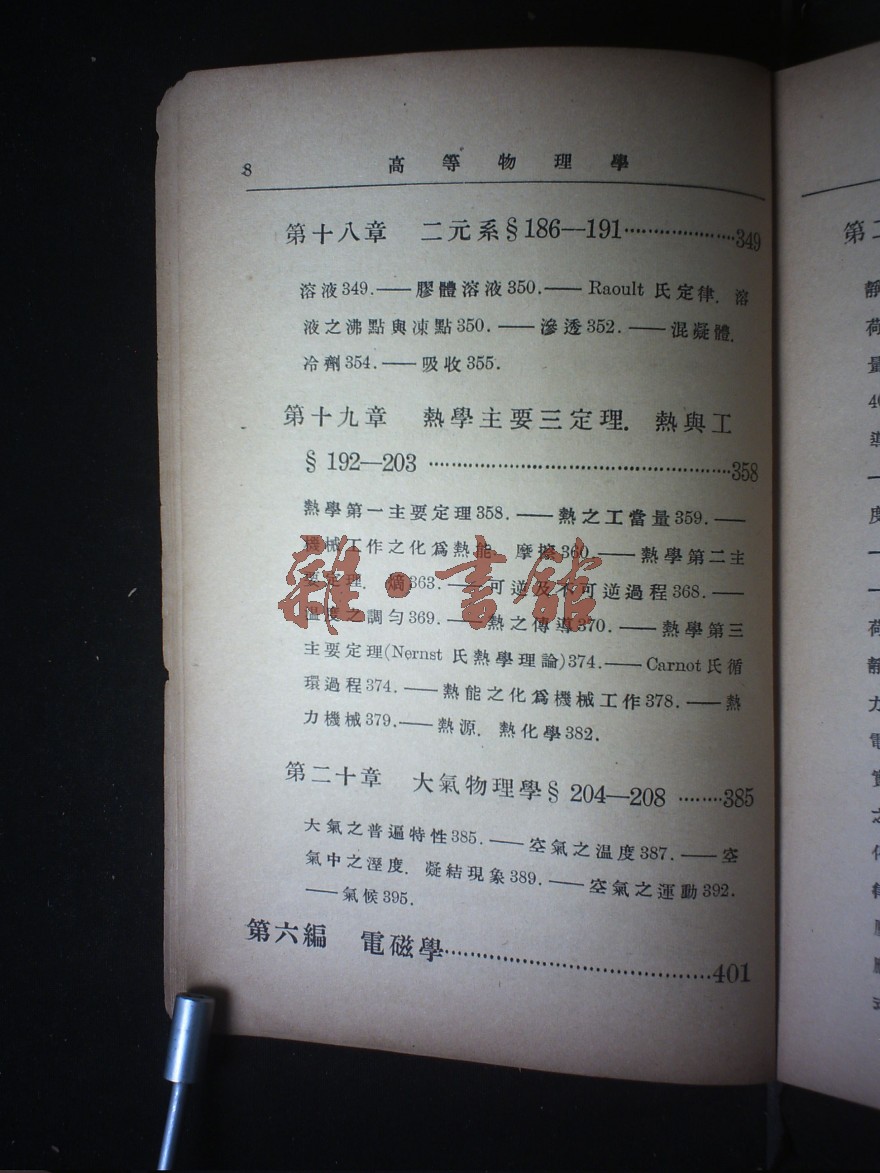 8 高等物理學
第十八章 二元系§186—191…………………349
溶液349.——膠體溶液350.——Raoult氏定律. 溶
液之沸點與凍點350.——滲透352.——混凝體.
冷劑354.——吸收355.
第十九章 熱學主要三定理. 熱與工
§192—203……………………………………358
熱學第一主要定理358.——熱之工當量359.——
機械工作之化爲熱能. 摩擦360.——熱學第二主
要定理. 熵363.——可逆及不可逆過程368.——
溫度之調勻369.——熱之傳導370.——熱學第三
主要定理(Nernst氏熱學理論)374.——Carnot氏循
環過程374.——熱能之化爲機械工作378.——熱
力機械379.——熱源. 熱化學382.
第二十章 大氣物理學§204—208………385
大氣之普遍特性385.——空氣之溫度387.——空
氣中之溼度. 凝結現象389.——空氣之運動392.
——氣候395.
第六編 電磁學………………………………401
雜·書館
第二
靜
荷
量
40
導
度
荷
靜
力
電
實
之
化
律